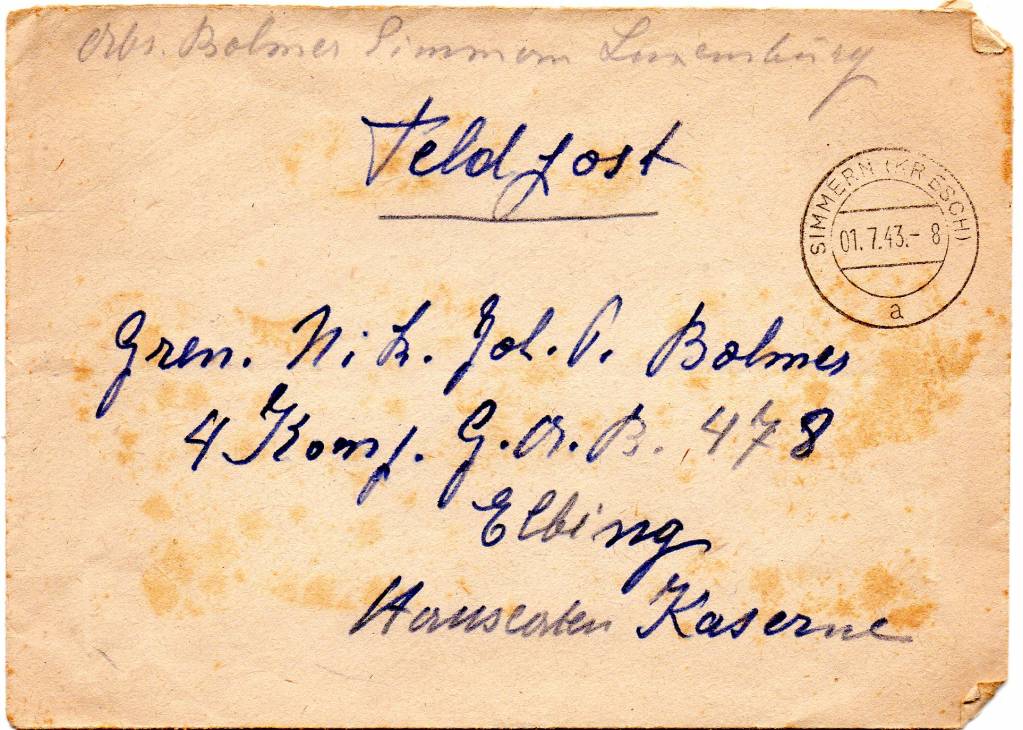 Abs. Bolmer Simmern Luxemburg
Feldpost
SIMMERN (KR ESCH)
01.7.43.- 8
a
Gren. Nik. Joh. P. Bolmer
4 Komp. G.A.B. 478
Elbing
Hanseaten Kaserne